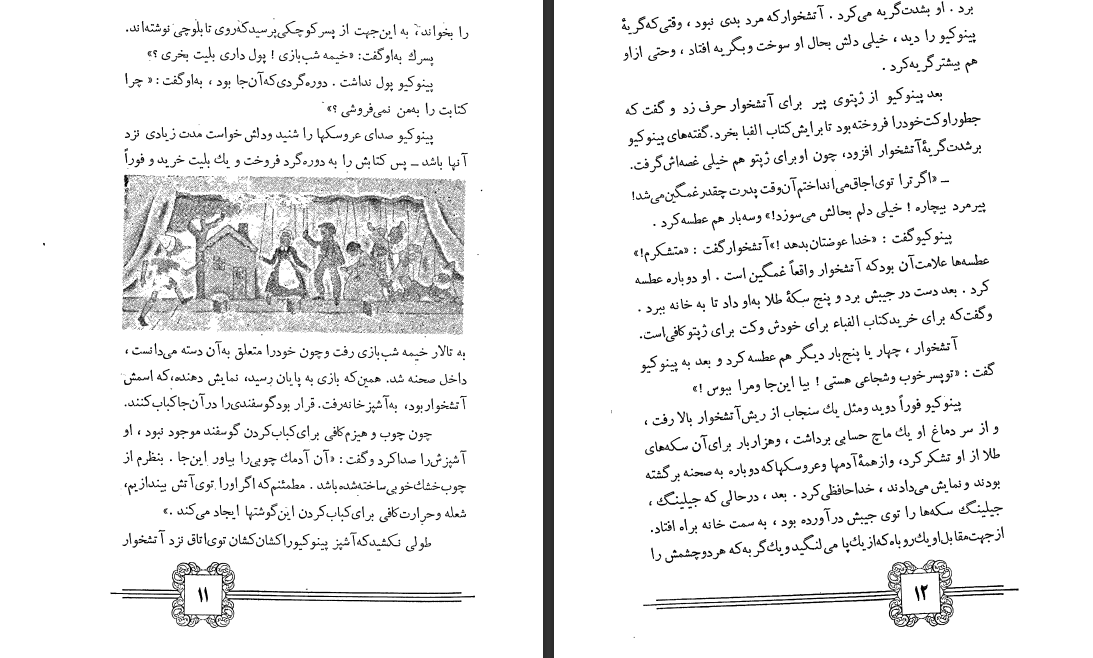 را بخواند، به این‌جهت از پسر کوچکی پرسید که روی تابلو چی نوشته‌اند.
پسرك به‌او گفت: «خیمه شب‌بازی ! پول داری بلیت بخری ؟»
پینوکیو پول نداشت . دوره‌گردی که آن‌جا بود ، به‌او گفت : « چرا
کتابت را به‌من نمی‌فروشی ؟»
پینوکیو صدای عروسکها را شنید و دلش خواست مدت زیادی نزد
آنها باشد ــ پس کتابش را به دوره‌گرد فروخت و یك بلیت خرید و فوراً
به تالار خیمه شب‌بازی رفت و چون خودرا متعلق به‌آن دسته می‌دانست ،
داخل صحنه شد. همین‌که بازی به پایان رسید، نمایش دهنده، که اسمش
آتشخوار بود، به‌آشپزخانه رفت. قرار بود گوسفندی را در آن‌جا کباب کنند.
چون چوب و هیزم کافی برای کباب کردن گوسفند موجود نبود ، او
آشپزش را صدا کرد و گفت : «آن آدمك چوبی را بیاور این‌جا . بنظرم از
چوب خشك خوبی ساخته شده باشد . مطمئنم که اگر اورا توی آتش بیندازیم،
شعله و حرارت کافی برای کباب کردن این گوشتها ایجاد می‌کند .»
طولی نکشید که آشپز پینوکیو را کشان کشان توی اتاق نزد آتشخوار
۱۱
برد . او بشدت گریه می‌کرد . آتشخوار که مرد بدی نبود ، وقتی که گریهٔ
پینوکیو را دید ، خیلی دلش بحال او سوخت و بگریه افتاد ، و حتی از او
هم بیشتر گریه کرد .
بعد پینوکیو از ژپتوی پیر برای آتشخوار حرف زد و گفت که
چطور او کت خودرا فروخته بود تا برایش کتاب الفبا بخرد. گفته‌های پینوکیو
بر شدت گریهٔ آتشخوار افزود، چون او برای ژپتو هم خیلی غصه‌اش گرفت.
ــ «اگر ترا توی اجاق می‌انداختم آن‌وقت پدرت چقدر غمگین می‌شد!
پیرمرد بیچاره ! خیلی دلم بحالش می‌سوزد!» و سه‌بار هم عطسه کرد .
پینوکیو گفت : «خدا عوضتان بدهد !» آتشخوار گفت : «متشکرم!»
عطسه‌ها علامت آن بود که آتشخوار واقعاً غمگین است . او دوباره عطسه
کرد . بعد دست در جیبش برد و پنج سکهٔ طلا به‌او داد تا به خانه ببرد .
و گفت که برای خرید کتاب الفباء برای خودش و کت برای ژپتو کافی است.
آتشخوار ، چهار یا پنج‌بار دیگر هم عطسه کرد و بعد به پینوکیو
گفت : «تو پسر خوب و شجاعی هستی ! بیا این‌جا و مرا ببوس !»
پینوکیو فوراً دوید و مثل یك سنجاب از ریش آتشخوار بالا رفت ،
و از سر دماغ او یك ماچ حسابی برداشت ، و هزار بار برای آن سکه‌های
طلا از او تشکر کرد، و از همهٔ آدمها و عروسکها که دوباره به صحنه برگشته
بودند و نمایش می‌دادند ، خداحافظی کرد . بعد ، درحالی که جیلینگ ،
جیلینگ سکه‌ها را توی جیبش درآورده بود ، به سمت خانه براه افتاد.
از جهت مقابل او یك روباه که از یك پا می‌لنگید و یك گربه که هر دو چشمش را
۱۲